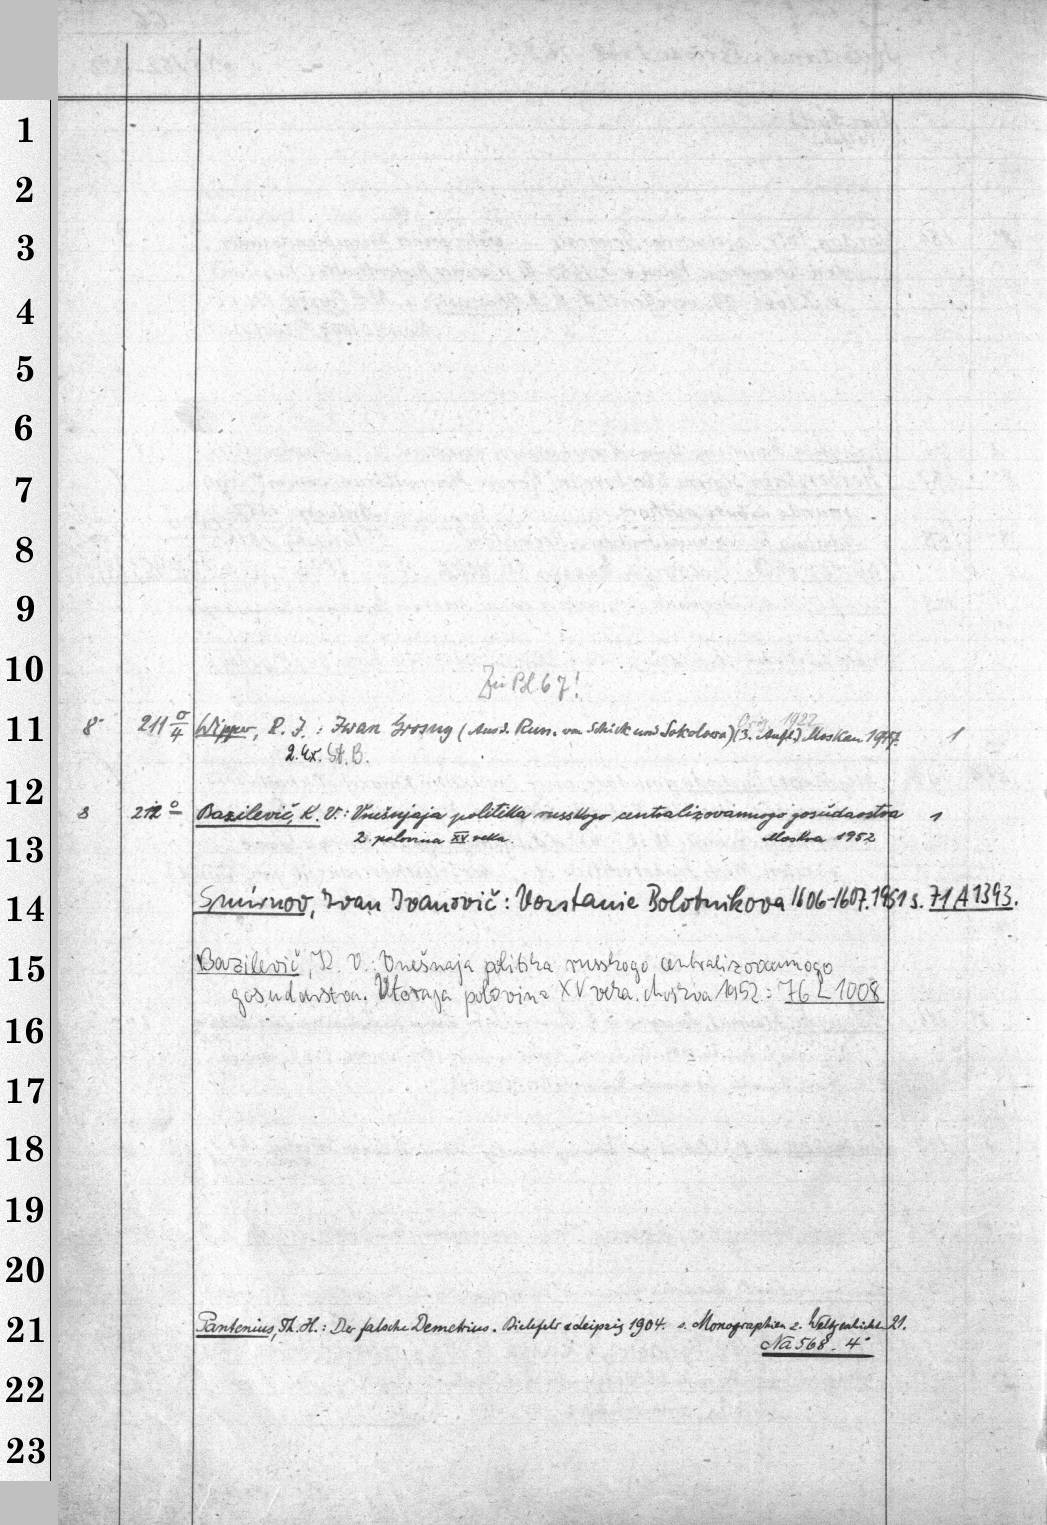 1
2
3
4
5
6
7
8
9
10
Zu Bl. 67!
11
8° 211 σ/4 Wipper, R. J.: Iwan Grosny (Aus d. Russ. von Schick und Sokolowa) (3. Aufl.) Moskau 1947. 1
Orig. 1922
2. Ex. St. B.
12
8 212 o Bazilevič, K. V.: Vnešnjaja politika russkogo centralizovannogo gosudarstva 1
2. polovina XV. veka. Moskva 1952
13
14
Smirnov, Ivan Ivanovič: Vosstanie Bolotnikova 1606-1607. 1951 s. 71 A 1393.
15
Bazilevič, K. V.: Vnešnaja politika russkogo centralizovannogo
gosudarstva. Vtoraja polovina XV veka. Moskva 1952: 76 L 1008
16
17
18
19
20
21
Pantenius, Th. H.: Der falsche Demetrius. Bielefeld u Leipzig 1904. s. Monographien z. Weltgeschichte 21.
Na 568. 4°
22
23